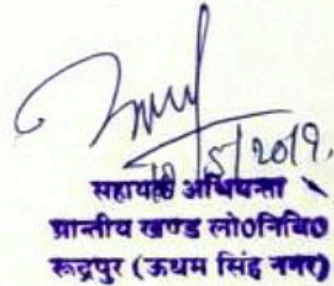 5/2019.
सहायक अभियन्ता
प्रान्तीय खण्ड लो०नि०वि०
रूद्रपुर (ऊधम सिंह नगर)